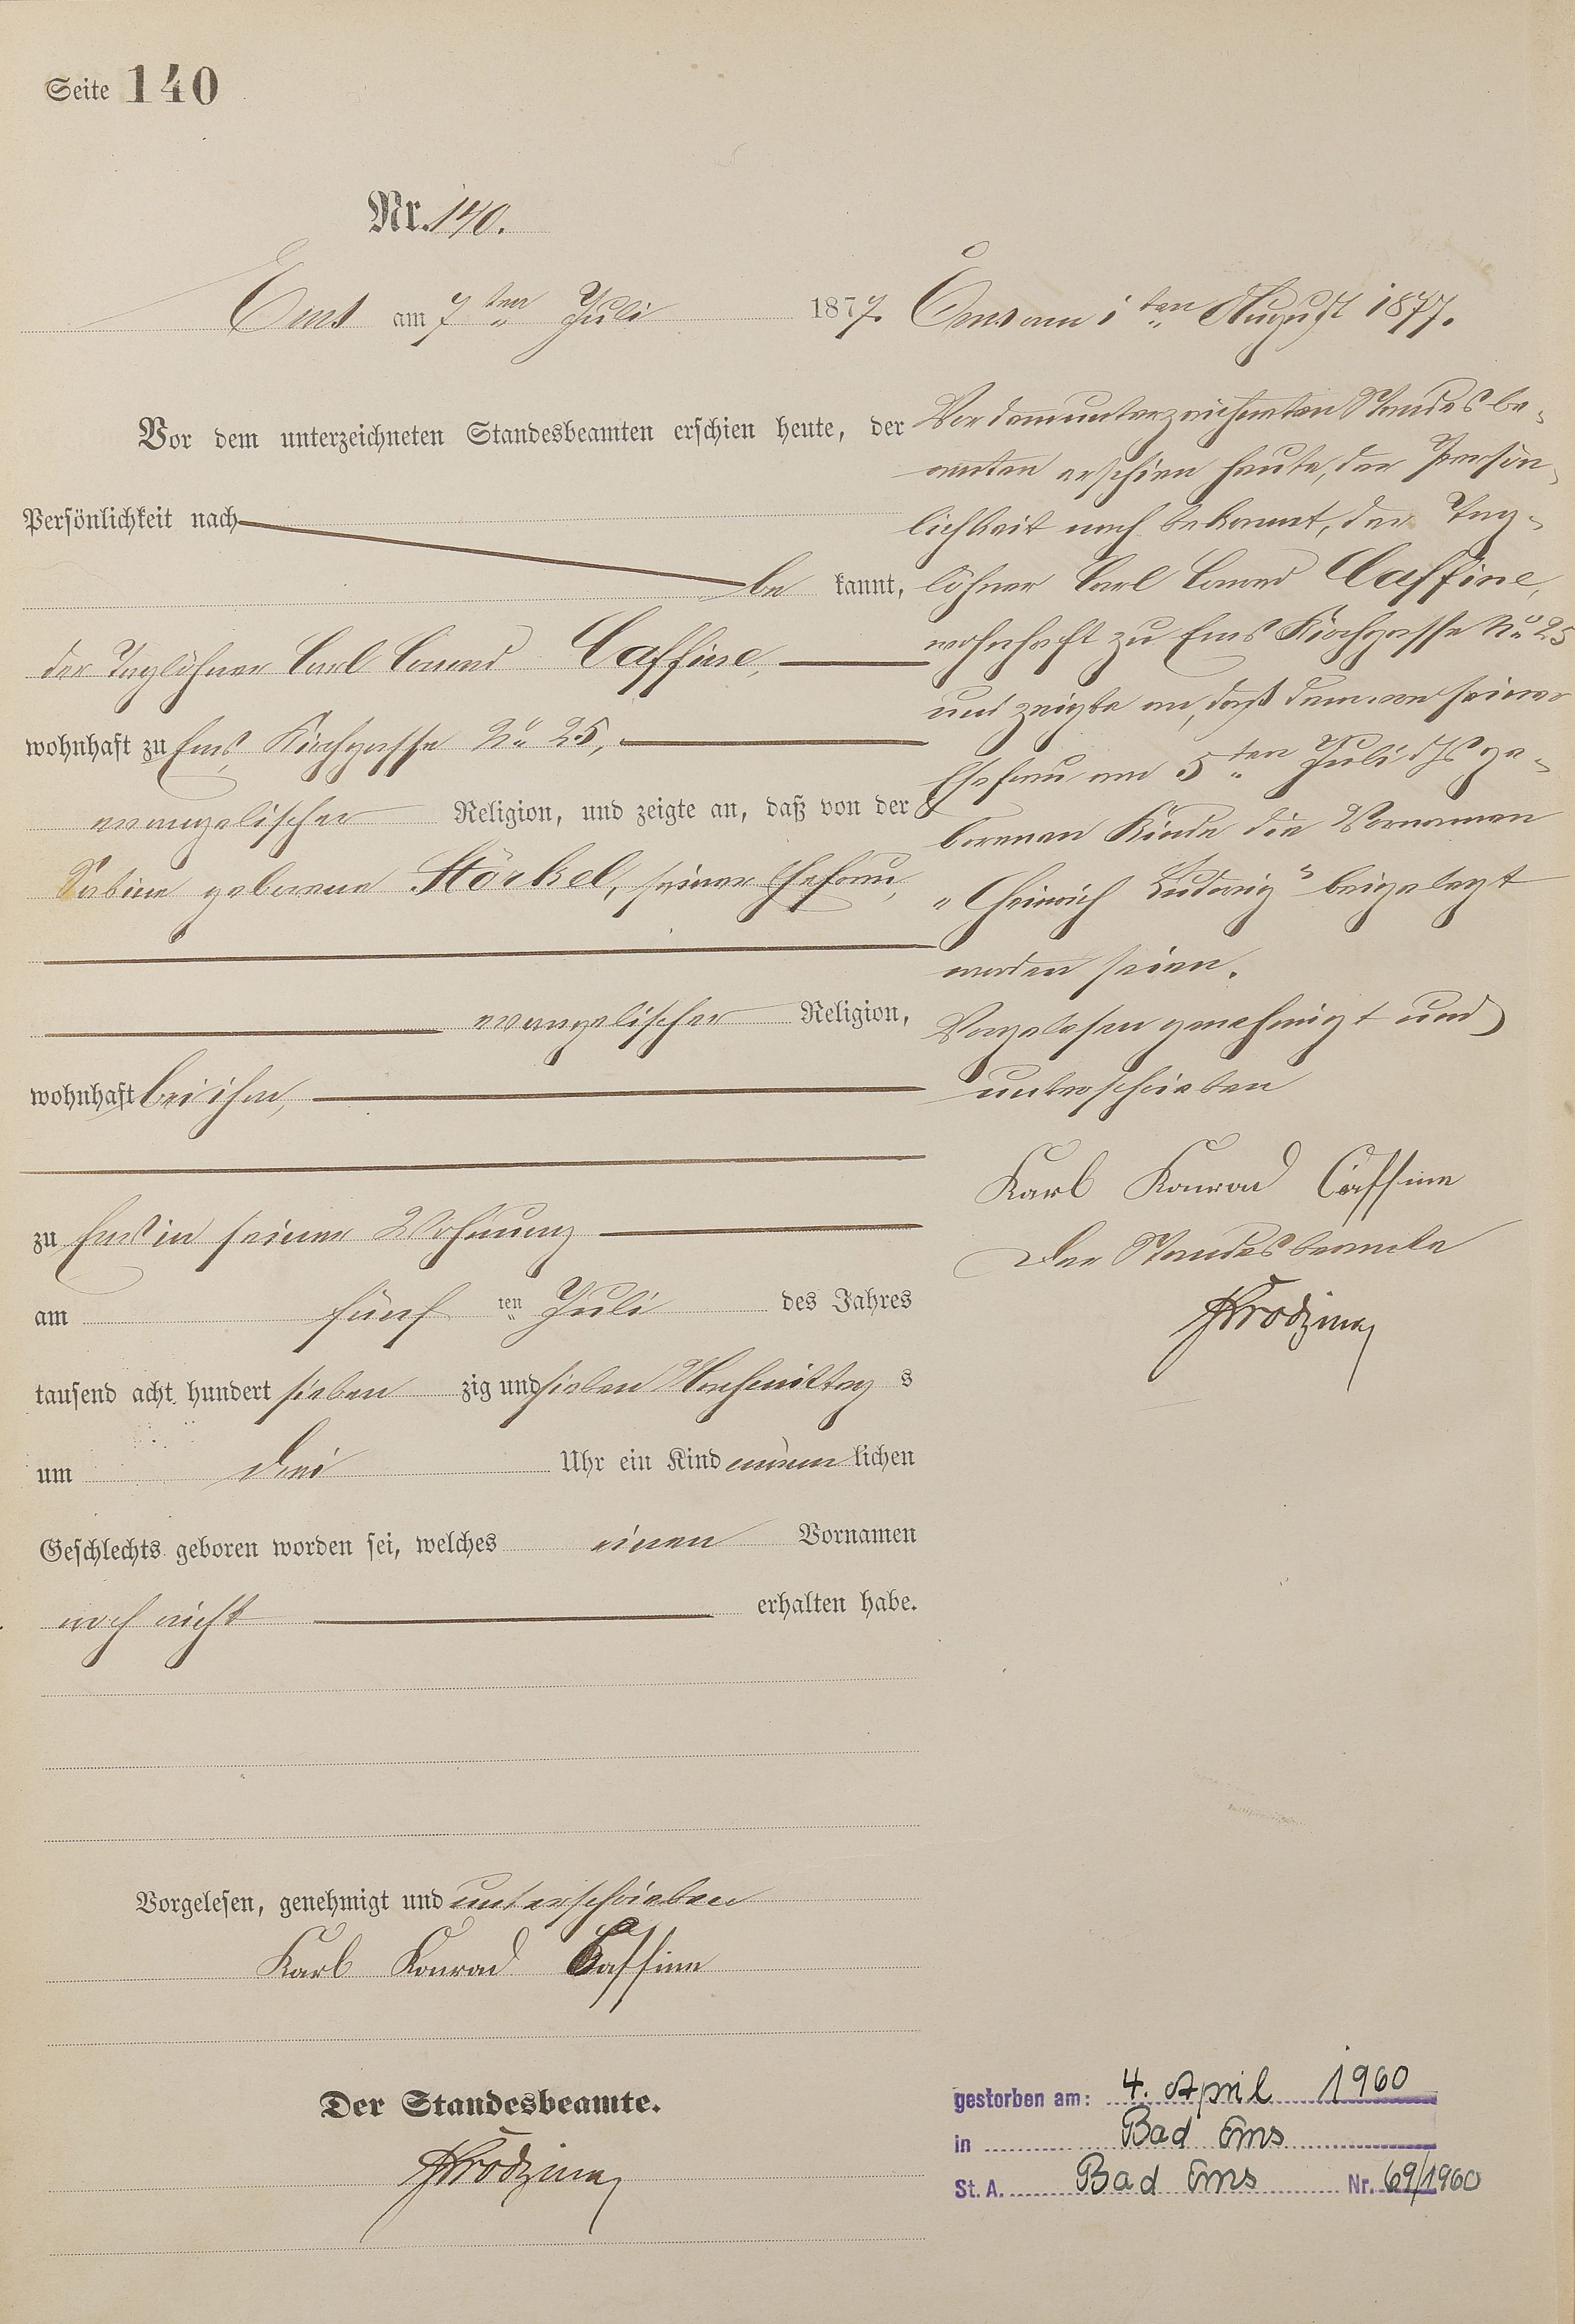 Seite 140
Nr. 140.
Ems am 7ten Juli 1877.
Vor dem unterzeichneten Standesbeamten erschien heute, der
Persönlichkeit nach
be kannt,
der Taglöhner Carl Conrad Caffine,
wohnhaft zu Ems, Kirchgasse No 25,
evangelischer Religion, und zeigte an, daß von der
Sabine geborene Störkel, seiner Ehefrau,
evangelischer Religion,
wohnhaft bei ihm,
zu Ems in seiner Wohnung
am fünf ten Juli des Jahres
tausend acht hundert sieben zig und sieben Nachmittag s
um drei Uhr ein Kind männ lichen
Geschlechts geboren worden sei, welches einen Vornamen
noch nicht erhalten habe.
Vorgelesen, genehmigt und unterschrieben
Karl Konrad Caffine
Der Standesbeamte.
Ems am 1ten August 1877.
Vor dem unterzeichneten Standesbe-
amten erschien heute, der Persön-
lichkeit nach bekannt, der Tag-
löhner Carl Conrad Caffine,
wohnhaft zu Ems Kirchgasse No 25
und zeigte an, daß dem von seiner
Ehefrau am 5ten Juli ds ge-
borenen Kinde die Vornamen
„Heinrich Ludwig" beigelegt
worden seien.
Vorgelesen genehmigt und
unterschrieben
Karl Konrad Caffine
Der Standesbeamte
gestorben am: 4. April 1960
in Bad Ems
St. A. Bad Ems Nr. 69/1960